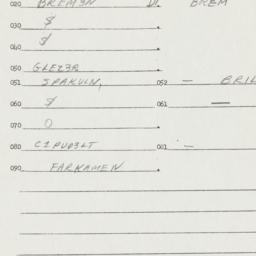 020 BREM3N DL BREM
030 $ .
040 $
050 GLEZ3R
051 SPAKULN, 052 — BRIL
060 $ 061 —
070 0
080 C1PUP3LT 081 —
090 FARKAMEN .